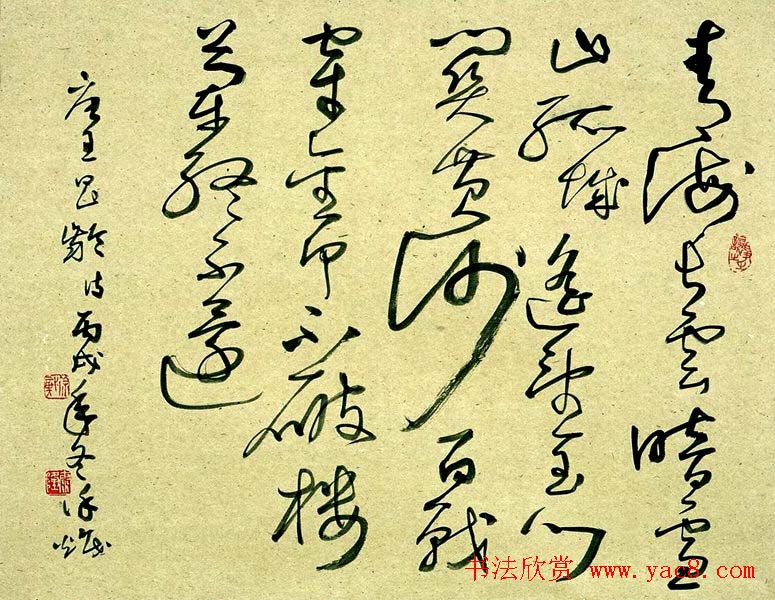 青海长雲暗雪
山孤城遥望玉门
関黄沙百戰
穿金甲不破楼
蘭终不還
唐王昌齡诗丙戌年冬徐
书法欣赏 www.yac8.com